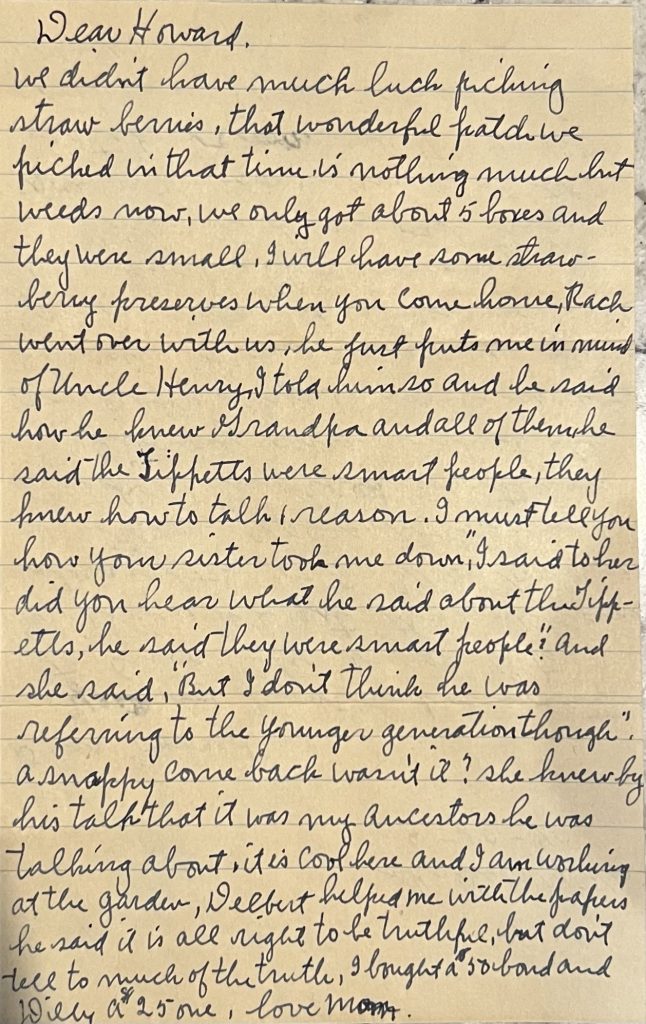 Dear Howard.
we didn't have much luck picking
straw berries, that wonderful patch we
picked in that time, is nothing much but
weeds now, we only got about 5 boxes and
they were small, I will have some straw-
berry preserves when you come home, Rach
went over with us, he just puts me in mind
of Uncle Henry, I told him so and he said
how he knew Grandpa and all of them, he
said the Tippetts were smart people, they
knew how to talk & reason. I must tell you
how your sister took me down, "I said to her
did you hear what he said about the Tipp-
etts, he said they were smart people"? and
she said, "But I don't think he was
referring to the younger generation though".
a snappy come back wasn't it? she knew by
his talk that it was my ancestors he was
talking about, it is cool here and I am working
at the garden, Delbert helped me with the papers
he said it is all right to be truthful, but don't
tell to much of the truth, I bought a $50 bond and
Willy a $25 one, love Mom.